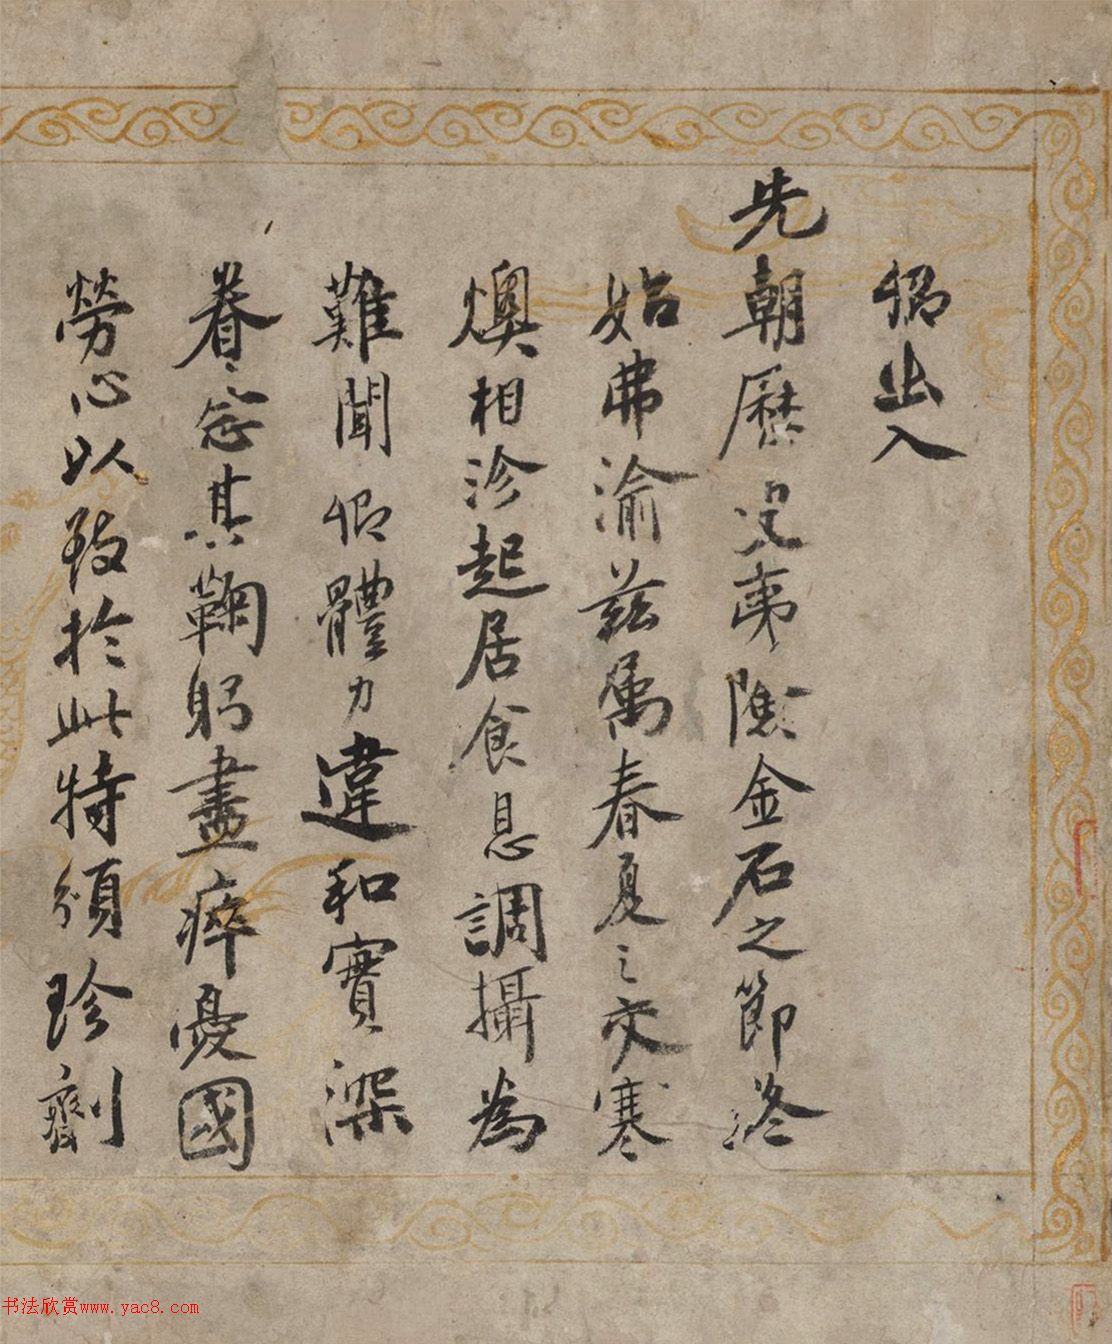 卿出入
先朝歷更夷險金石之節終
始弗渝茲屬春夏之交寒
燠相沴起居食息調攝為
難聞卿體力違和實深
眷念其鞠躬盡瘁憂國
勞心以致於此特頒珍劑
书法欣赏www.yac8.com